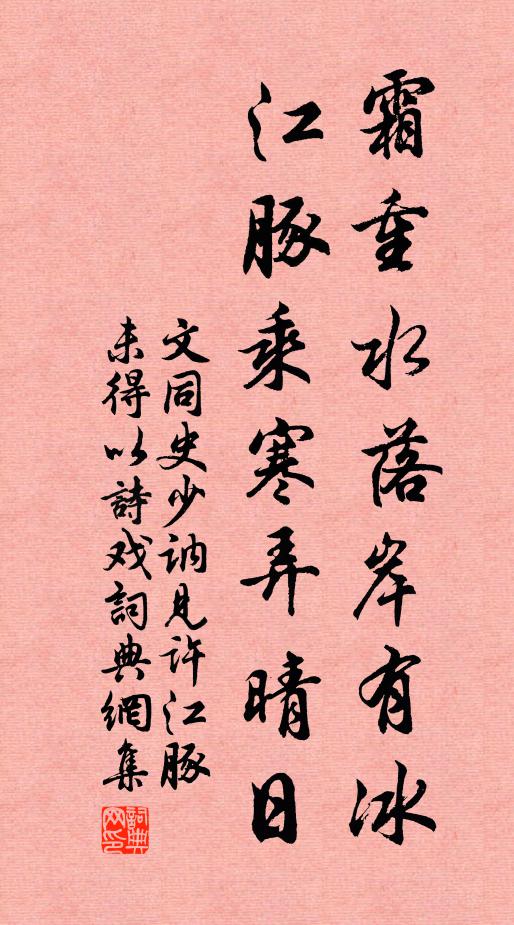 霜重水落岸有冰
江豚乘寒弄晴日
文同史少訥見許江豚
未得以詩戏詞典網集
詞典网印